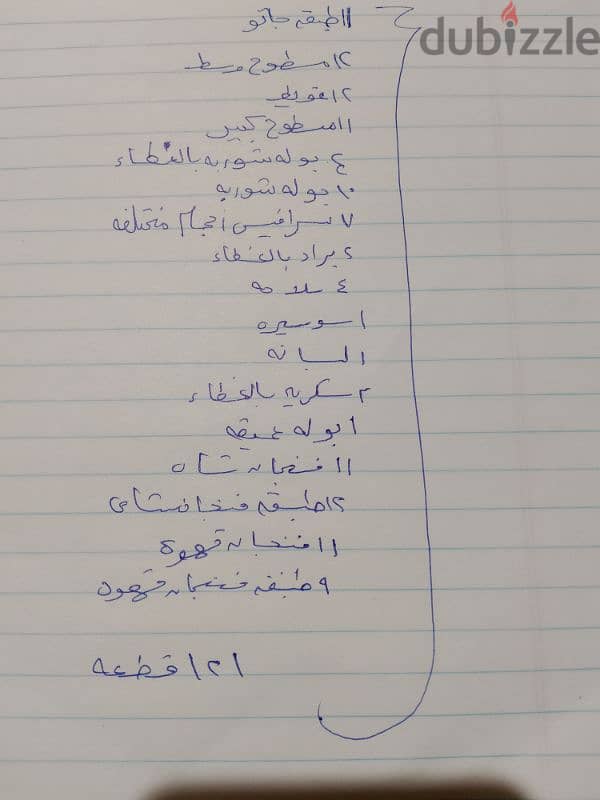 dubizzle
١١ طبقه جاتو
١٢ مسطوح وسط
١٢ غويط
١١ مسطوح كبير
٤ بوله شوربه بالغطاء
١٠ بوله شوربه
٧ سرافيس احجام مختلفه
٢ براد بالغطاء
٤ سلاحه
١ سوسيره
١ لبانه
٢ سكريه بالغطاء
١ بوله عميقه
١١ فنجان شاى
١٢ طبقه فنجان شاى
١١ فنجان قهوة
٩ طبقه فنجان قهوه
١٢١ قطعه